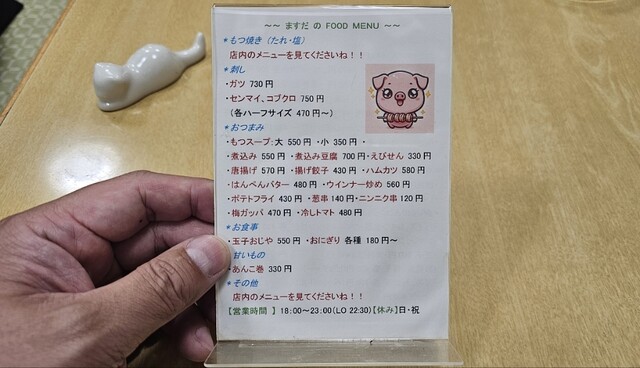 ~~ ますだ の FOOD MENU ~~
*もつ焼き（たれ・塩）
店内のメニューを見てくださいね！！
*刺し
・ガツ 730 円
・センマイ、コブクロ 750 円
（各ハーフサイズ 470 円～）
*おつまみ
・もつスープ：大 550 円 ・小 350 円 ・
・煮込み 550 円 ・煮込み豆腐 700 円・えびせん 330 円
・唐揚げ 570 円 ・揚げ餃子 430 円 ・ハムカツ 580 円
・はんぺんバター 480 円 ・ウインナー炒め 560 円
・ポテトフライ 430 円 ・葱串 140 円・ニンニク串 120 円
・梅ガッパ 470 円 ・冷しトマト 480 円
*お食事
・玉子おじや 550 円 ・おにぎり 各種 180 円～
*甘いもの
・あんこ巻 330 円
*その他
店内のメニューを見てくださいね！！
【営業時間 】 18：00～23：00（LO 22:30）【休み】日・祝